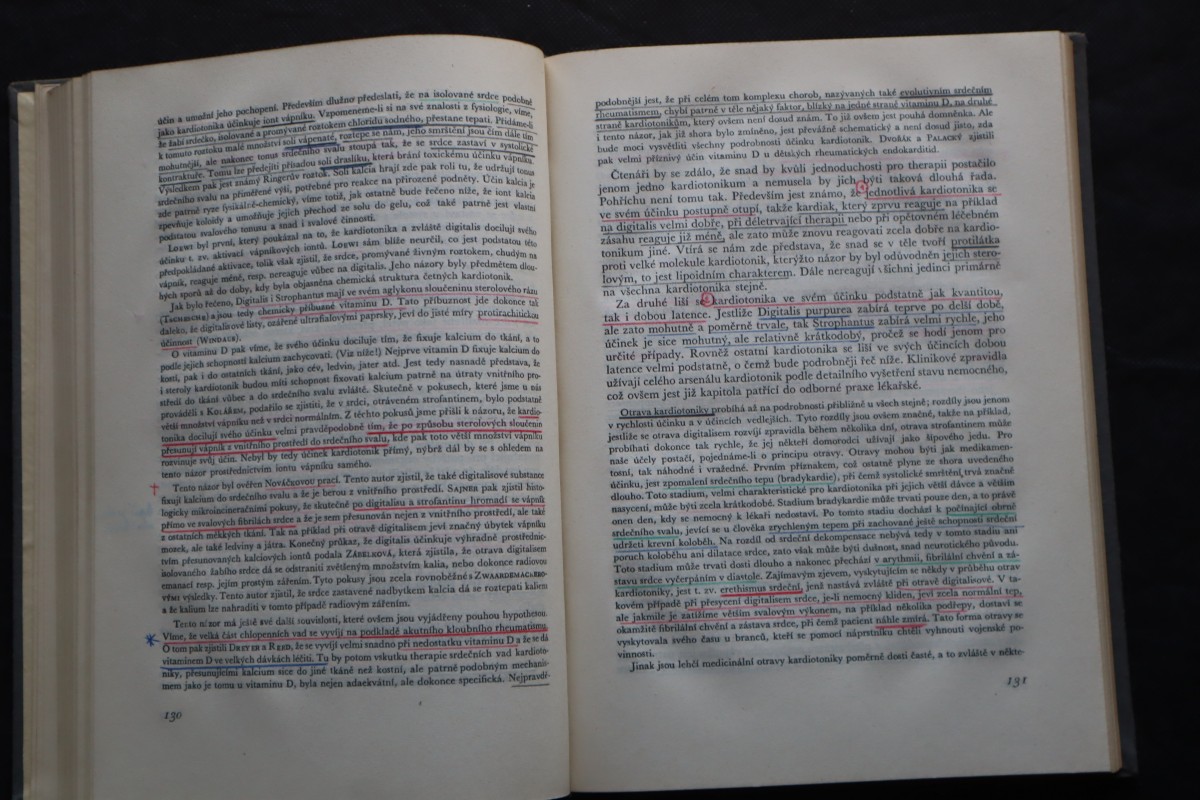 účin a umožní jeho pochopení. Především dlužno předeslati, že na isolované srdce podobně
jako kardiotonika účinkuje iont vápníku. Vzpomeneme-li si na své znalosti z fysiologie, víme,
že žabí srdéčko, isolované a promývané roztokem chloridu sodného, přestane tepati. Přidáme-li
k tomuto roztoku malé množství soli vápenaté, roztepe se nám, jeho smrštění jsou čím dále tím
mohutnější, ale nakonec tomus srdečního svalu stoupá tak, že se srdce zastaví v systolické
kontraktuře. Tomu lze předejíti přísadou soli draslíku, která brání toxickému účinku vápníku.
Výsledkem pak jest známý Ringerův roztok. Soli kalcia hrají zde pak roli tu, že udržují tonus
srdečního svalu na přiměřené výši, potřebné pro reakce na přirozené podněty. Účin kalcia je
zde patrně ryze fysikálně-chemický, víme totiž, jak ostatně bude řečeno níže, že iont kalcia
zpevňuje koloidy a umožňuje jejich přechod ze solu do gelu, což také patrně jest vlastní
podstatou svalového tonusu a snad i svalové činnosti.
Loewi byl první, který poukázal na to, že kardiotonika a zvláště digitalis docilují svého
účinku t. zv. aktivací vápníkových iontů. Loewi sám blíže neurčil, co jest podstatou této
předpokládané aktivace, tolik však zjistil, že srdce, promývané živným roztokem, chudým na
vápník, reaguje méně, resp. nereaguje vůbec na digitalis. Jeho názory byly předmětem dlou-
hých sporů až do doby, kdy byla objasněna chemická struktura četných kardiotonik.
Jak bylo řečeno, Digitalis i Strophantus mají ve svém aglykonu sloučeninu sterolového rázu
(Tschesche) a jsou tedy chemicky příbuzné vitaminu D. Tato příbuznost jde dokonce tak
daleko, že digitalisové listy, ozářené ultrafialovými paprsky, jeví do jisté míry protirachitickou
účinnost (Windaus).
O vitaminu D pak víme, že svého účinku dociluje tím, že fixuje kalcium do tkání, a to
podle jejich schopnosti kalcium zachycovati. (Viz níže!) Nejprve vitamin D fixuje kalcium do
kostí, pak i do ostatních tkání, jako cév, ledvin, jater atd. Jest tedy nasnadě představa, že
i steroly kardiotonik budou míti schopnost fixovati kalcium patrně na útraty vnitřního pro-
středí do tkání vůbec a do srdečního svalu zvláště. Skutečně v pokusech, které jsme u nás
prováděli s Kolářem, podařilo se zjistiti, že v srdci, otráveném strofantinem, bylo podstatně
větší množství vápníku než v srdci normálním. Z těchto pokusů jsme přišli k názoru, že kardio-
tonika docilují svého účinku velmi pravděpodobně tím, že po způsobu sterolových sloučenin
přesunují vápník z vnitřního prostředí do srdečního svalu, kde pak toto větší množství vápníku
rozvinuje svůj účin. Nebyl by tedy účinek kardiotonik přímý, nýbrž dál by se s ohledem na
tento názor prostřednictvím iontu vápníku samého.
Tento názor byl ověřen Nováčkovou prací. Tento autor zjistil, že také digitalisové substance
fixují kalcium do srdečního svalu a že je berou z vnitřního prostředí. Sajner pak zjistil histo-
logicky mikroincineračními pokusy, že skutečně po digitalisu a strofantinu hromadí se vápník
přímo ve svalových fibrilách srdce a že je sem přesunován nejen z vnitřního prostředí, ale také
z ostatních měkkých tkání. Tak na příklad při otravě digitalisem jeví značný úbytek vápníku
mozek, ale také ledviny a játra. Konečný průkaz, že digitalis účinkuje výhradně prostřednic-
tvím přesunovaných kalciových iontů podala Zábelková, která zjistila, že otrava digitalisem
isolovaného žabího srdce dá se odstraniti zvětšeným množstvím kalia, nebo dokonce radiovou
emanací resp. jejím prostým zářením. Tyto pokusy jsou zcela rovnoběžné s Zwaardemacero-
vými výsledky. Tento autor zjistil, že srdce zastavené nadbytkem kalcia dá se roztepati kaliem
a že kalium lze nahraditi v tomto případě radiovým zářením.
Tento názor má ještě své další souvislosti, které ovšem jsou vyjádřeny pouhou hypothesou.
Víme, že velká část chlopenních vad se vyvíjí na podkladě akutního kloubního rheumatismu.
O tom pak zjistili Dreyer a Reed, že se vyvíjí velmi snadno při nedostatku vitaminu D a že se dá
vitaminem D ve velkých dávkách léčiti. Tu by potom vskutku therapie srdečních vad kardio-
toniky, přesunujícími kalcium sice do jiné tkáně než kostní, ale patrně podobným mechanis-
mem jako je tomu u vitaminu D, byla nejen adaekvátní, ale dokonce specifická. Nejpravdě-
130
podobnější jest, že při celém tom komplexu chorob, nazývaných také evolutivním srdečním
rheumatismem, chybí patrně v těle nějaký faktor, blízký na jedné straně vitaminu D, na druhé
straně kardiotonikům, který ovšem není dosud znám. To již ovšem jest pouhá domněnka. Ale
i tento názor, jak již shora bylo zmíněno, jest převážně schematický a není dosud jisto, zda
bude moci vysvětliti všechny podrobnosti účinku kardiotonik. Dvořák a Palacký zjistili
pak velmi příznivý účin vitaminu D u dětských rheumatických endokarditid.
Čtenáři by se zdálo, že snad by kvůli jednoduchosti pro therapii postačilo
jenom jedno kardiotonikum a nemusela by jich býti taková dlouhá řada.
Pohříchu není tomu tak. Především jest známo, že jednotlivá kardiotonika se
ve svém účinku postupně otupí, takže kardiak, který zprvu reaguje na příklad
na digitalis velmi dobře, při déletrvající therapii nebo při opětovném léčebném
zásahu reaguje již méně, ale zato může znovu reagovati zcela dobře na kardio-
tonikum jiné. Vtírá se nám zde představa, že snad se v těle tvoří protilátka
proti velké molekule kardiotonik, kterýžto názor by byl odůvodněn jejich stero-
lovým, to jest lipoidním charakterem. Dále nereagují všichni jedinci primárně
na všechna kardiotonika stejně.
Za druhé liší se kardiotonika ve svém účinku podstatně jak kvantitou,
tak i dobou latence. Jestliže Digitalis purpurea zabírá teprve po delší době,
ale zato mohutně a poměrně trvale, tak Strophantus zabírá velmi rychle, jeho
účinek je sice mohutný, ale relativně krátkodobý, pročež se hodí jenom pro
určité případy. Rovněž ostatní kardiotonika se liší ve svých účincích dobou
latence velmi podstatně, o čemž bude podrobněji řeč níže. Klinikové zpravidla
užívají celého arsenálu kardiotonik podle detailního vyšetření stavu nemocného,
což ovšem jest již kapitola patřící do odborné praxe lékařské.
Otrava kardiotoniky probíhá až na podrobnosti přibližně u všech stejně; rozdíly jsou jenom
v rychlosti účinku a v účincích vedlejších. Tyto rozdíly jsou ovšem značné, takže na příklad,
jestliže se otrava digitalisem rozvíjí zpravidla během několika dní, otrava strofantinem může
probíhati dokonce tak rychle, že jej někteří domorodci užívají jako šípového jedu. Pro
naše účely postačí, pojednáme-li o principu otravy. Otravy mohou býti jak medikamen-
tomí, tak náhodné i vražedné. Prvním příznakem, což ostatně plyne ze shora uvedeného
účinku, jest zpomalení srdečního tepu (bradykardie), při čemž systolické smrštění trvá značně
dlouho. Toto stadium, velmi charakteristické pro kardiotonika při jejich větší dávce a větším
nasycení, může býti zcela krátkodobé. Stadium bradykardie může trvati pouze den, a to právě
onen den, kdy se nemocný k lékaři nedostaví. Po tomto stadiu dochází k počínající obrně
srdečního svalu, jevící se u člověka zrychleným tepem při zachované ještě schopnosti srdeční
udržeti krevní koloběh. Na rozdíl od srdeční dekompensace nebývá tedy v tomto stadiu ani
poruch koloběhu ani dilatace srdce, zato však může býti dušnost, snad neurotického původu.
Toto stadium může trvati dosti dlouho a nakonec přechází v arythmii, fibrilální chvění a zá-
stavu srdce vyčerpáním v diastole. Zajímavým zjevem, vyskytujícím se někdy v průběhu otrav
kardiotoniky, jest t. zv. erethismus srdeční, jenž nastává zvláště při otravě digitalisové. V ta-
kovém případě při přesycení digitalisem srdce, je-li nemocný kliden, jeví zcela normální tep,
ale jakmile je zatížíme větším svalovým výkonem, na příklad několika podřepy, dostaví se
okamžitě fibrilální chvění a zástava srdce, při čemž pacient náhle zmírá. Tato forma otravy se
vyskytovala svého času u branců, kteří se pomocí náprstníku chtěli vyhnouti vojenské po-
vinnosti.
Jinak jsou lehčí medicinální otravy kardiotoniky poměrně dosti časté, a to zvláště v někte-
131